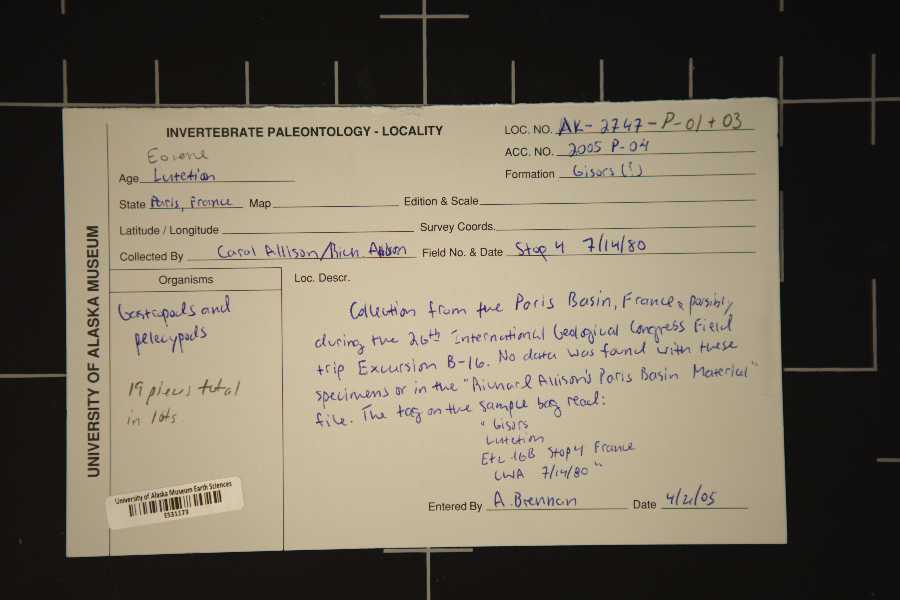 INVERTEBRATE PALEONTOLOGY - LOCALITY
LOC. NO. AK-2747-P-01+03
ACC. NO. 2005 P-04
Eocene
Age Lutetian
Formation Gisors (?)
State Paris, France Map Edition & Scale
Latitude / Longitude Survey Coords.
Collected By Carol Allison/Rich Allison Field No. & Date Stop 4 7/14/80
UNIVERSITY OF ALASKA MUSEUM
Organisms
Gastropods and
pelecypods
19 pieces total
in lots.
University of Alaska Museum Earth Sciences
ES31173
Loc. Descr.
Collection from the Paris Basin, France, possibly
during the 26th International Geological Congress Field
trip Excursion B-16. No data was found with these
specimens or in the "Richard Allison's Paris Basin Material"
file. The tag on the sample bag read:
"Gisors
Lutetian
16B Stop 4 France
7/14/80"
Entered By A. Brennan Date 4/21/05